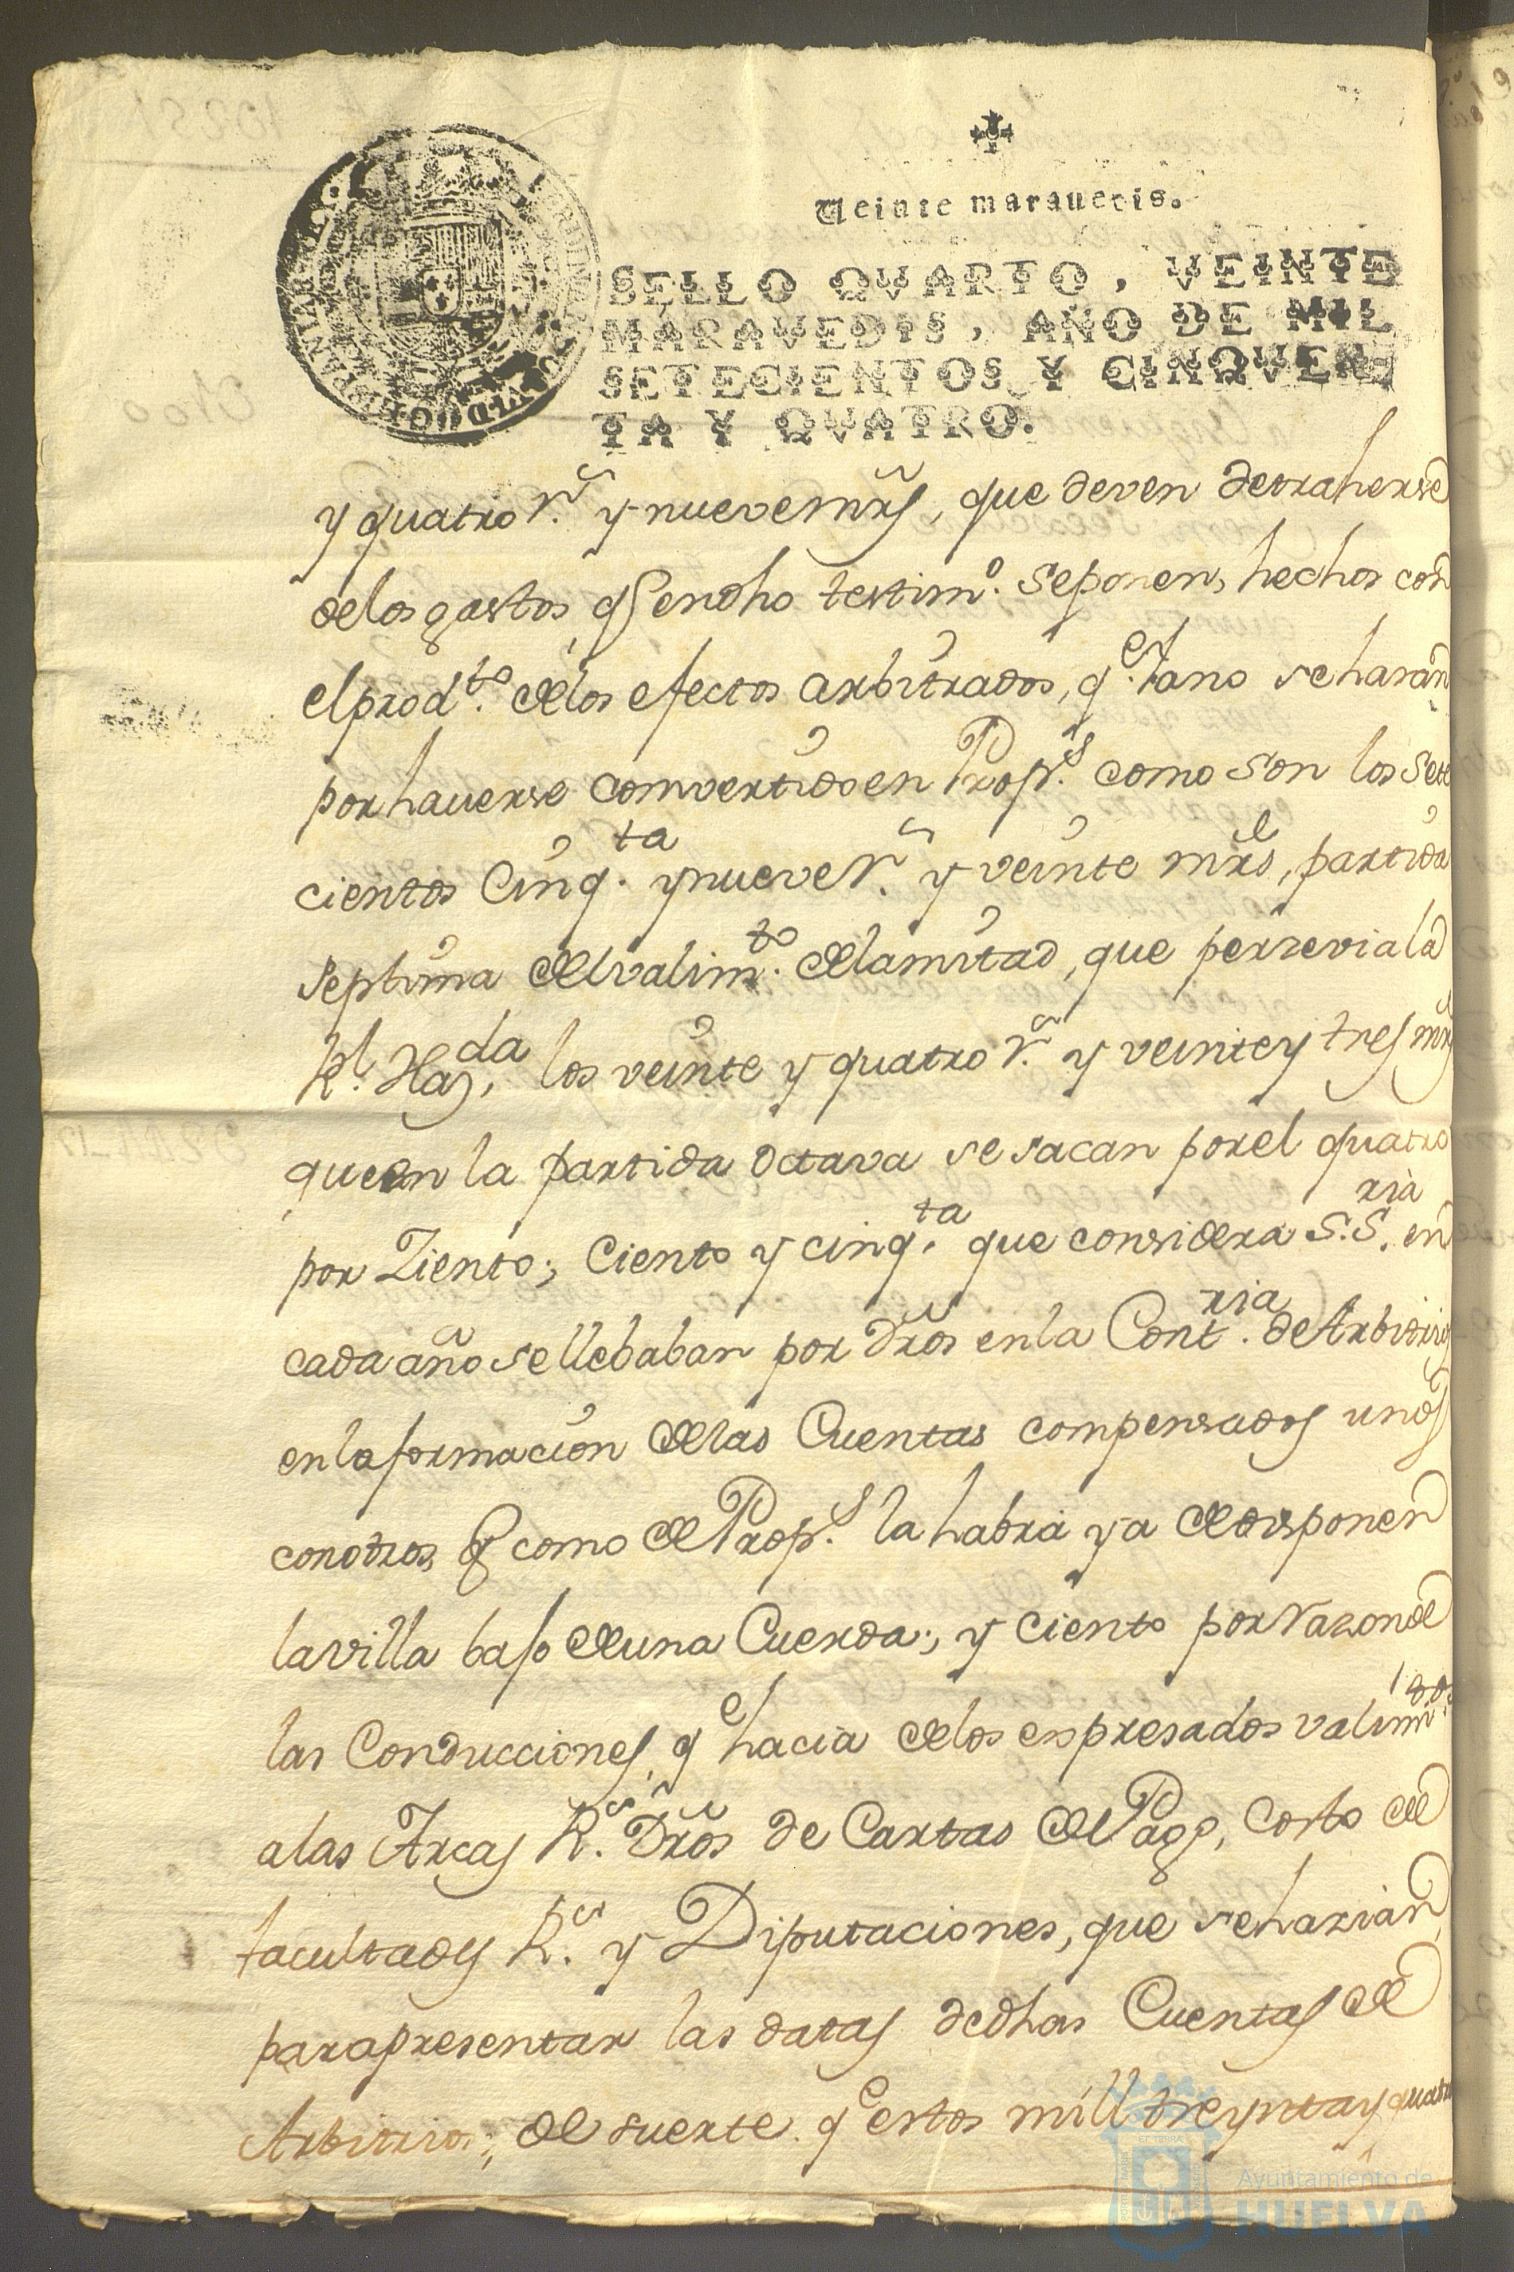 Veinte maravedis.
SELLO QVARTO, VEINTE
MARAVEDIS, AÑO DE MIL
SETECIENTOS Y CINQVEN-
TA Y QVATRO.
y quatro r.s y nueve mrs, que deven detraherse
de los gastos, q en dho testim.o se ponen, hechos con
el prod.to de los efectos arbitrados, q.e Ya no se harán
por haverse comvertido en Prop.s como son los sete
cientos Cinq.ta y nueve r.s y veinte mrs, partida
septima del valim.to de la mitad, que perzevia la
R.l Haz.da los veinte y quatro r.s y veinte y tres mrs
que en la partida octava se sacan por el quatro
por Ziento; Ciento y cinq.ta que considera S.S.ria en
cada año se llebaban por dros en la Cont.ria de Arbitrios
en la formacion de las Cuentas compensados unos
con otros, q como de Prop.s la habrá ya de disponer
la villa bajo de una Cuerda; y Ciento por razon de
las Conducciones, q.e hacia de los expresados valim.tos
a las Arcas R.s Dros de Cartas de Pago, Costo de
facultades R.s y Diputaciones, que se harian
para presentar las datas de dhas Cuentas de
Arbitrios; de suerte q.e estos mill treynta y quatro
Ayuntamiento de
HUELVA